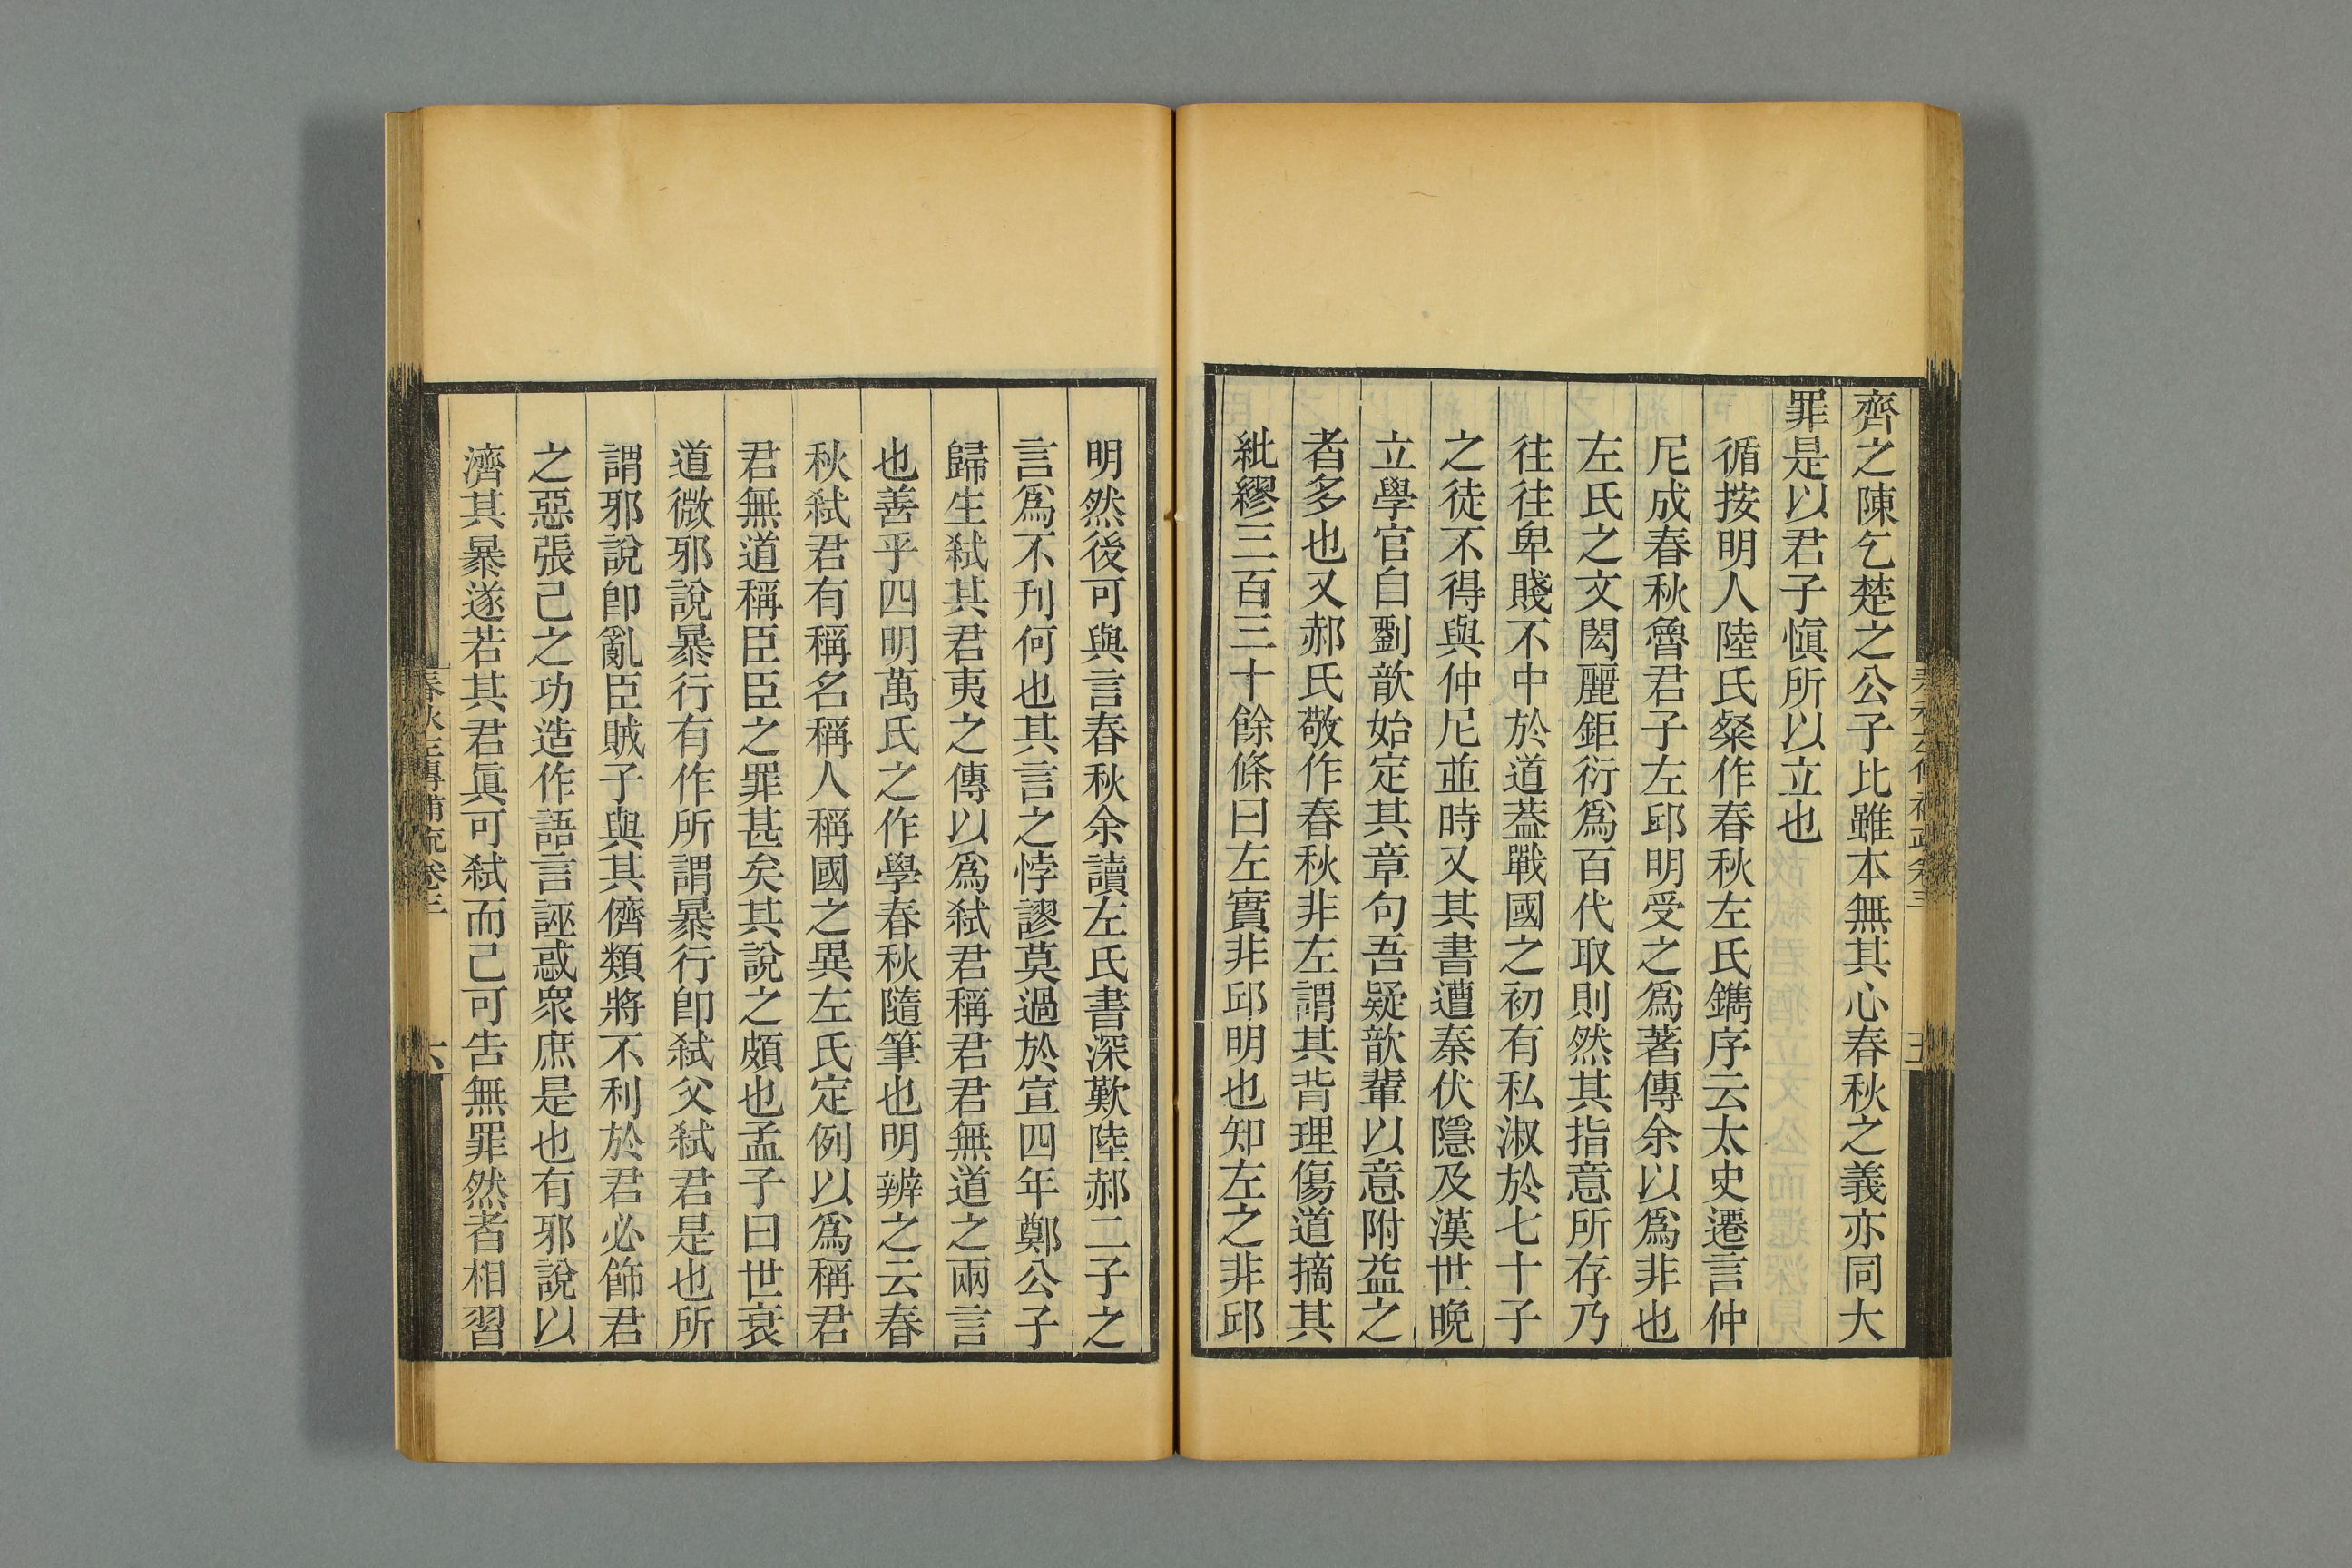 齊之陳乞楚之公子比雖本無其心春秋之義亦同大
罪是以君子愼所以立也
循按明人陸氏粲作春秋左氏鐫序云太史遷言仲
尼成春秋魯君子左邱明受之爲著傳余以爲非也
左氏之文閎麗鉅衍爲百代取則然其指意所存乃
往往卑賤不中於道蓋戰國之初有私淑於七十子
之徒不得與仲尼並時又其書遭秦伏隱及漢世晚
立學官自劉歆始定其章句吾疑歆輩以意附益之
者多也又郝氏敬作春秋非左謂其背理傷道摘其
紕繆三百三十餘條曰左實非邱明也知左之非邱
明然後可與言春秋余讀左氏書深歎陸郝二子之
言爲不刊何也其言之悖謬莫過於宣四年鄭公子
歸生弒其君夷之傳以爲弒君稱君君無道之兩言
也善乎四明萬氏之作學春秋隨筆也明辨之云春
秋弒君有稱名稱人稱國之異左氏定例以爲稱君
君無道稱臣臣之罪甚矣其說之頗也孟子曰世衰
道微邪說暴行有作所謂暴行卽弒父弒君是也所
謂邪說卽亂臣賊子與其儕類將不利於君必飾君
之惡張己之功造作語言誣惑衆庶是也有邪說以
濟其暴遂若其君眞可弒而己可告無罪然者相習
春秋左傳補疏卷三
六